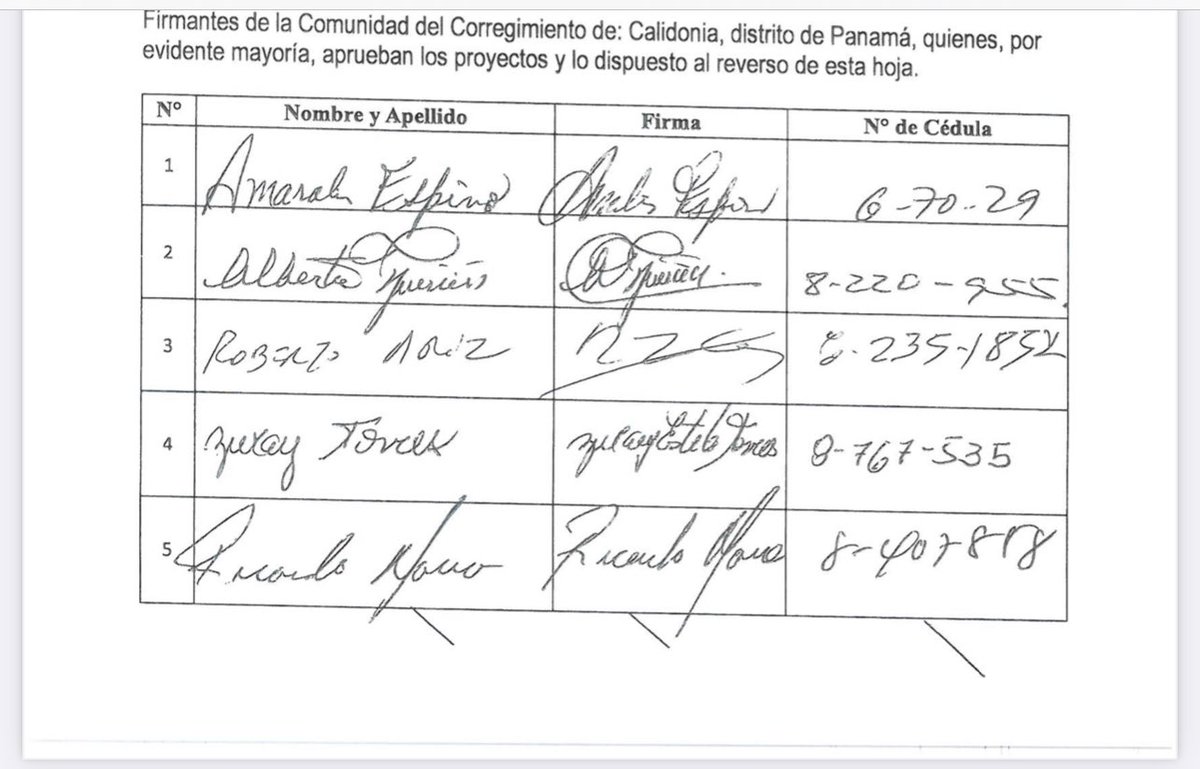 Firmantes de la Comunidad del Corregimiento de: Calidonia, distrito de Panamá, quienes, por
evidente mayoría, aprueban los proyectos y lo dispuesto al reverso de esta hoja.
Nº Nombre y Apellido Firma Nº de Cédula
1 Espino 6-70-29
2 8-220-955
3 Roberto 8-235-1852
4 Zuray Torres Zuray Torres 8-767-535
5 Ricardo Ricardo